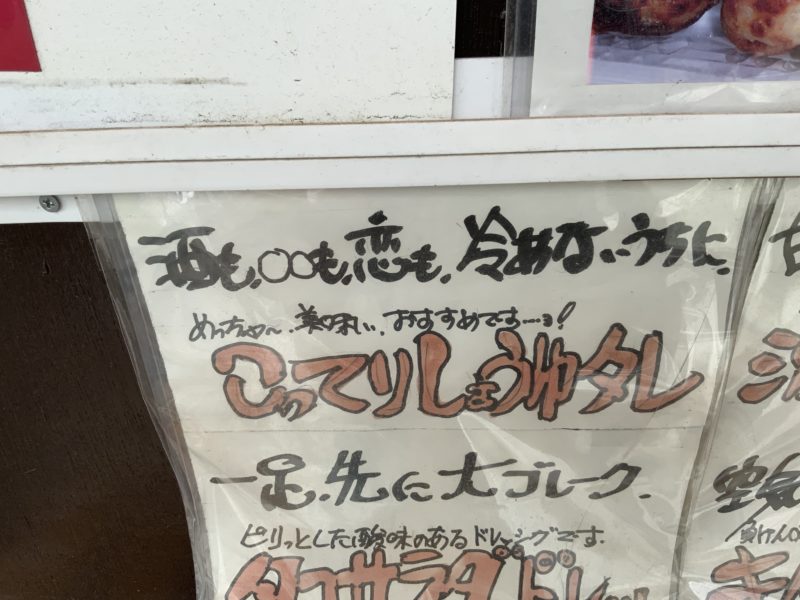 酒も、○○も、恋も、冷めないうちに、
めっちゃ〜、美味い、おすすめです…ョ!
こってりしょうゆタレ
一足、先に大ブレーク、
ピリっとした酸味のあるドレッシングです。
タコサラダドレ